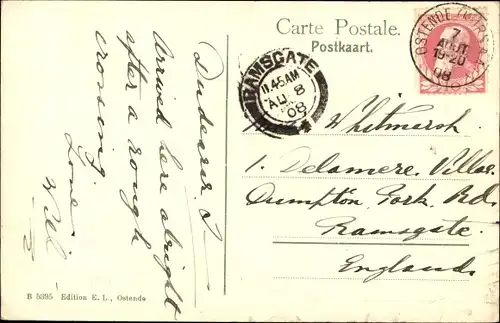 Carte Postale.
Postkaart.
OSTENDE
7
AOUT
19-20
08
RAMSGATE
11.45AM
AU 8
08
Whitmarsh
1. Delamere Villas
Dumpton Park Rd.
Ramsgate.
England.
Arrived here alright
after a rough
crossing.
Love
Will
B 5395 Edition E. L., Ostende